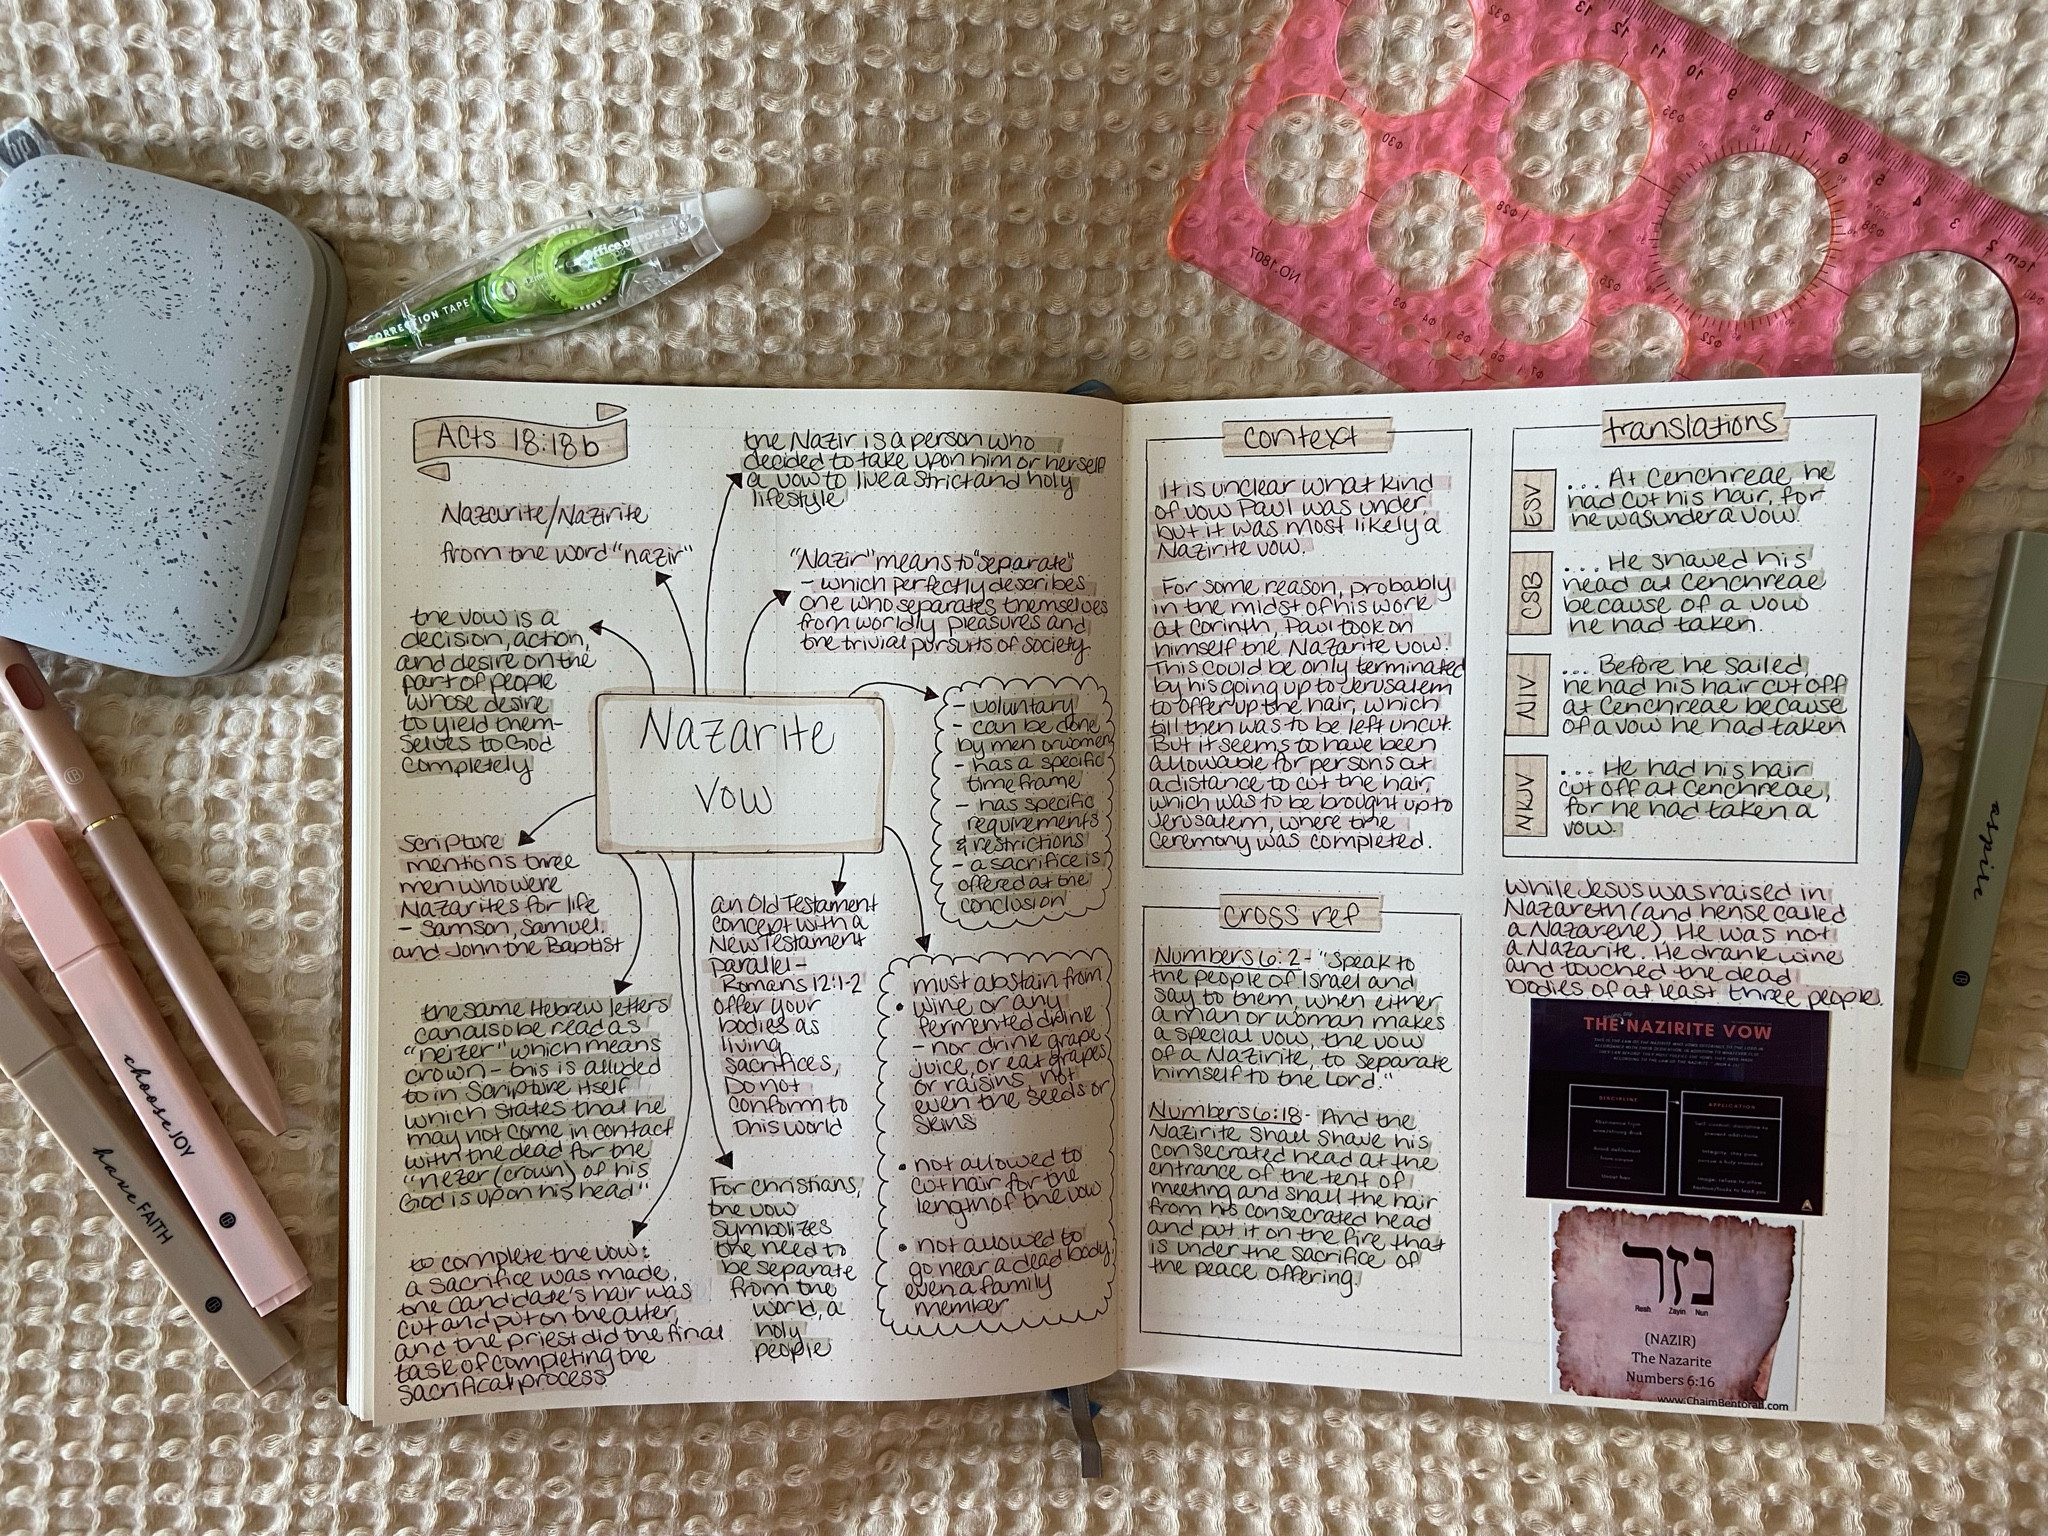 Acts 18:18b
Nazarite/Nazirite
from the word "nazir"
the Nazir is a person who
decided to take upon him or herself
a vow to live a strict and holy
lifestyle
"Nazir" means to "separate"
- which perfectly describes
one who separates themselves
from worldly pleasures and
the trivial pursuits of society
the vow is a
decision, action,
and desire on the
part of people
whose desire
to yield them-
selves to God
completely
Nazarite
vow
- voluntary
- can be done
by men or women
- has a specific
time frame
- has specific
requirements
& restrictions
- a sacrifice is
offered at the
conclusion
Scripture
mentions three
men who were
Nazarites for life
- Samson, Samuel,
and John the Baptist
the same Hebrew letters
can also be read as
"neizer" which means
crown - this is alluded
to in Scripture itself
which states that he
may not come in contact
with the dead for the
"nezer (crown) of his
God is upon his head"
to complete the vow:
a sacrifice was made,
the candidate's hair was
cut and put on the alter,
and the priest did the final
task of completing the
sacrifical process
an Old Testament
concept with a
New Testament
parallel -
Romans 12:1-2
offer your
bodies as
living
sacrifices,
Do not
conform to
this world
For christians,
the vow
symbolizes
the need to
be separate
from the
world, a
holy
people
must abstain from
• wine or any
fermented drink
- nor drink grape
juice, or eat grapes
or raisins, not
even the seeds or
skins
• not allowed to
cut hair for the
length of the vow
• not allowed to
go near a dead body,
even a family
member
context
It is unclear what kind
of vow Paul was under
but it was most likely a
Nazirite vow.
For some reason, probably
in the midst of his work
at Corinth, Paul took on
himself the Nazarite vow.
This could be only terminated
by his going up to Jerusalem
to offer up the hair, which
till then was to be left uncut.
But it seems to have been
allowable for persons at
a distance to cut the hair,
which was to be brought up to
Jerusalem, where the
ceremony was completed.
cross ref
Numbers 6:2 - "Speak to
the people of Israel and
say to them, when either
a man or woman makes
a special vow, the vow
of a Nazirite, to separate
himself to the Lord."
Numbers 6:18 - And the
Nazirite shall shave his
consecrated head at the
entrance of the tent of
meeting and shall the hair
from his consecrated head
and put it on the fire that
is under the sacrifice of
the peace offering.
translations
ESV
... At Cenchreae he
had cut his hair, for
he was under a vow.
CSB
... He shaved his
head at Cenchreae
because of a vow
he had taken.
NIV
... Before he sailed,
he had his hair cut off
at Cenchreae because
of a vow he had taken
NKJV
... He had his hair
cut off at Cenchreae,
for he had taken a
vow.
While Jesus was raised in
Nazareth (and hense called
a Nazarene) He was not
a Nazarite. He drank wine
and touched the dead
bodies of at least three people.
THE NAZIRITE VOW
DISCIPLINE
APPLICATION
נזר
Resh Zayin Nun
(NAZIR)
The Nazarite
Numbers 6:16
www.ChaimBentorah.com
CORRECTION TAPE
choose JOY
have FAITH
aspire
NO.1807